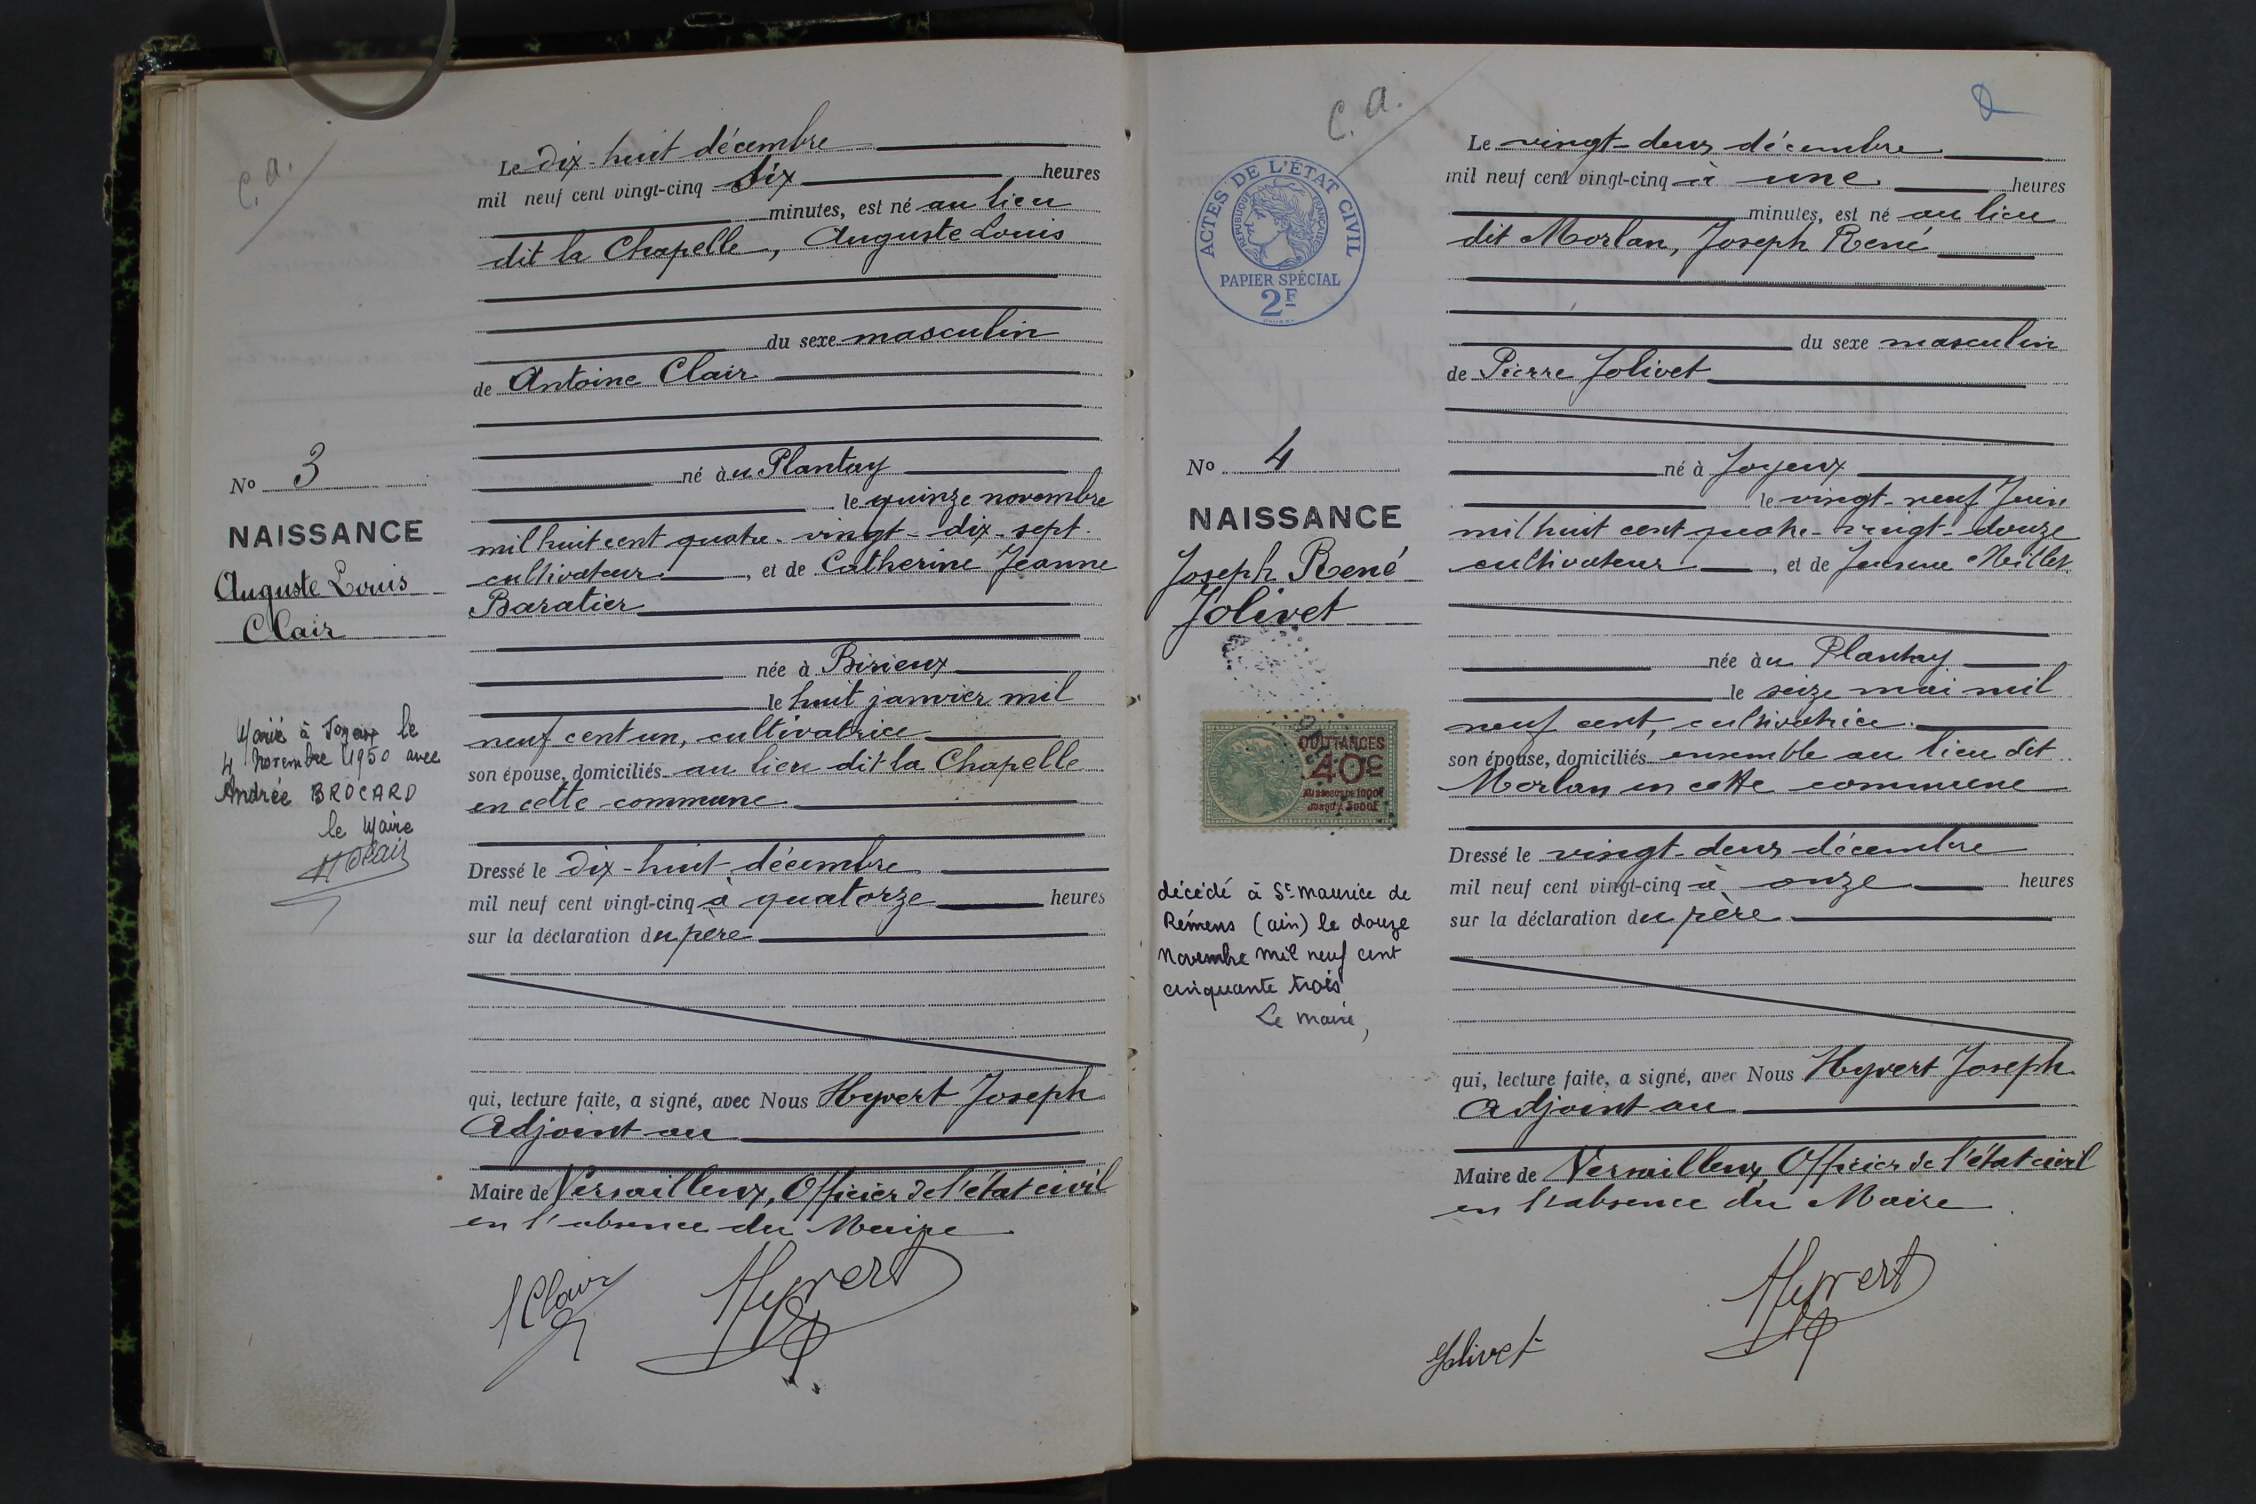 C. a.
Le dix-huit décembre
mil neuf cent vingt-cinq six heures
minutes, est né au lieu
dit la Chapelle, Auguste Louis
du sexe masculin
de Antoine Clair
né à u Plantay
le quinze novembre
mil huit cent quatre-vingt-dix-sept
cultivateur, et de Catherine Jeanne
Baratier
née à Birieux
le huit janvier mil
neuf cent un, cultivatrice
son épouse, domiciliés au lieu dit la Chapelle
en cette commune
Dressé le dix-huit décembre
mil neuf cent vingt-cinq à quatorze heures
sur la déclaration du père
qui, lecture faite, a signé, avec Nous Hyvert Joseph
Adjoint au
Maire de Versailleux, Officier de l'état civil
en l'absence du Maire
Clair
Hyvert
No 3
NAISSANCE
Auguste Louis
Clair
Marié à Joyeux le
4 Novembre 1950 avec
Andrée BROCARD
le Maire
C. a.
ACTES DE L'ÉTAT CIVIL
RÉPUBLIQUE FRANÇAISE
PAPIER SPÉCIAL
2F
No 4
NAISSANCE
Joseph René
Jolivet
QUITTANCES
40c
AU DESSUS DE 1000F
JUSQU'À 3000F
décédé à St Maurice de
Rémens (ain) le douze
Novembre mil neuf cent
cinquante trois
Le Maire,
Le vingt-deux décembre
mil neuf cent vingt-cinq à une heures
minutes, est né au lieu
dit Morlan, Joseph René
du sexe masculin
de Pierre Jolivet
né à Joyeux
le vingt-neuf Juin
mil huit cent quatre-vingt-douze
cultivateur, et de
née à u Plantay
le seize mai mil
neuf cent, cultivatrice.
son épouse, domiciliés ensemble au lieu dit
Morlan en cette commune
Dressé le vingt-deux décembre
mil neuf cent vingt-cinq à onze heures
sur la déclaration du père
qui, lecture faite, a signé, avec Nous Hyvert Joseph
Adjoint au
Maire de Versailleux, Officier de l'état civil
en l'absence du Maire
Hyvert
Jolivet